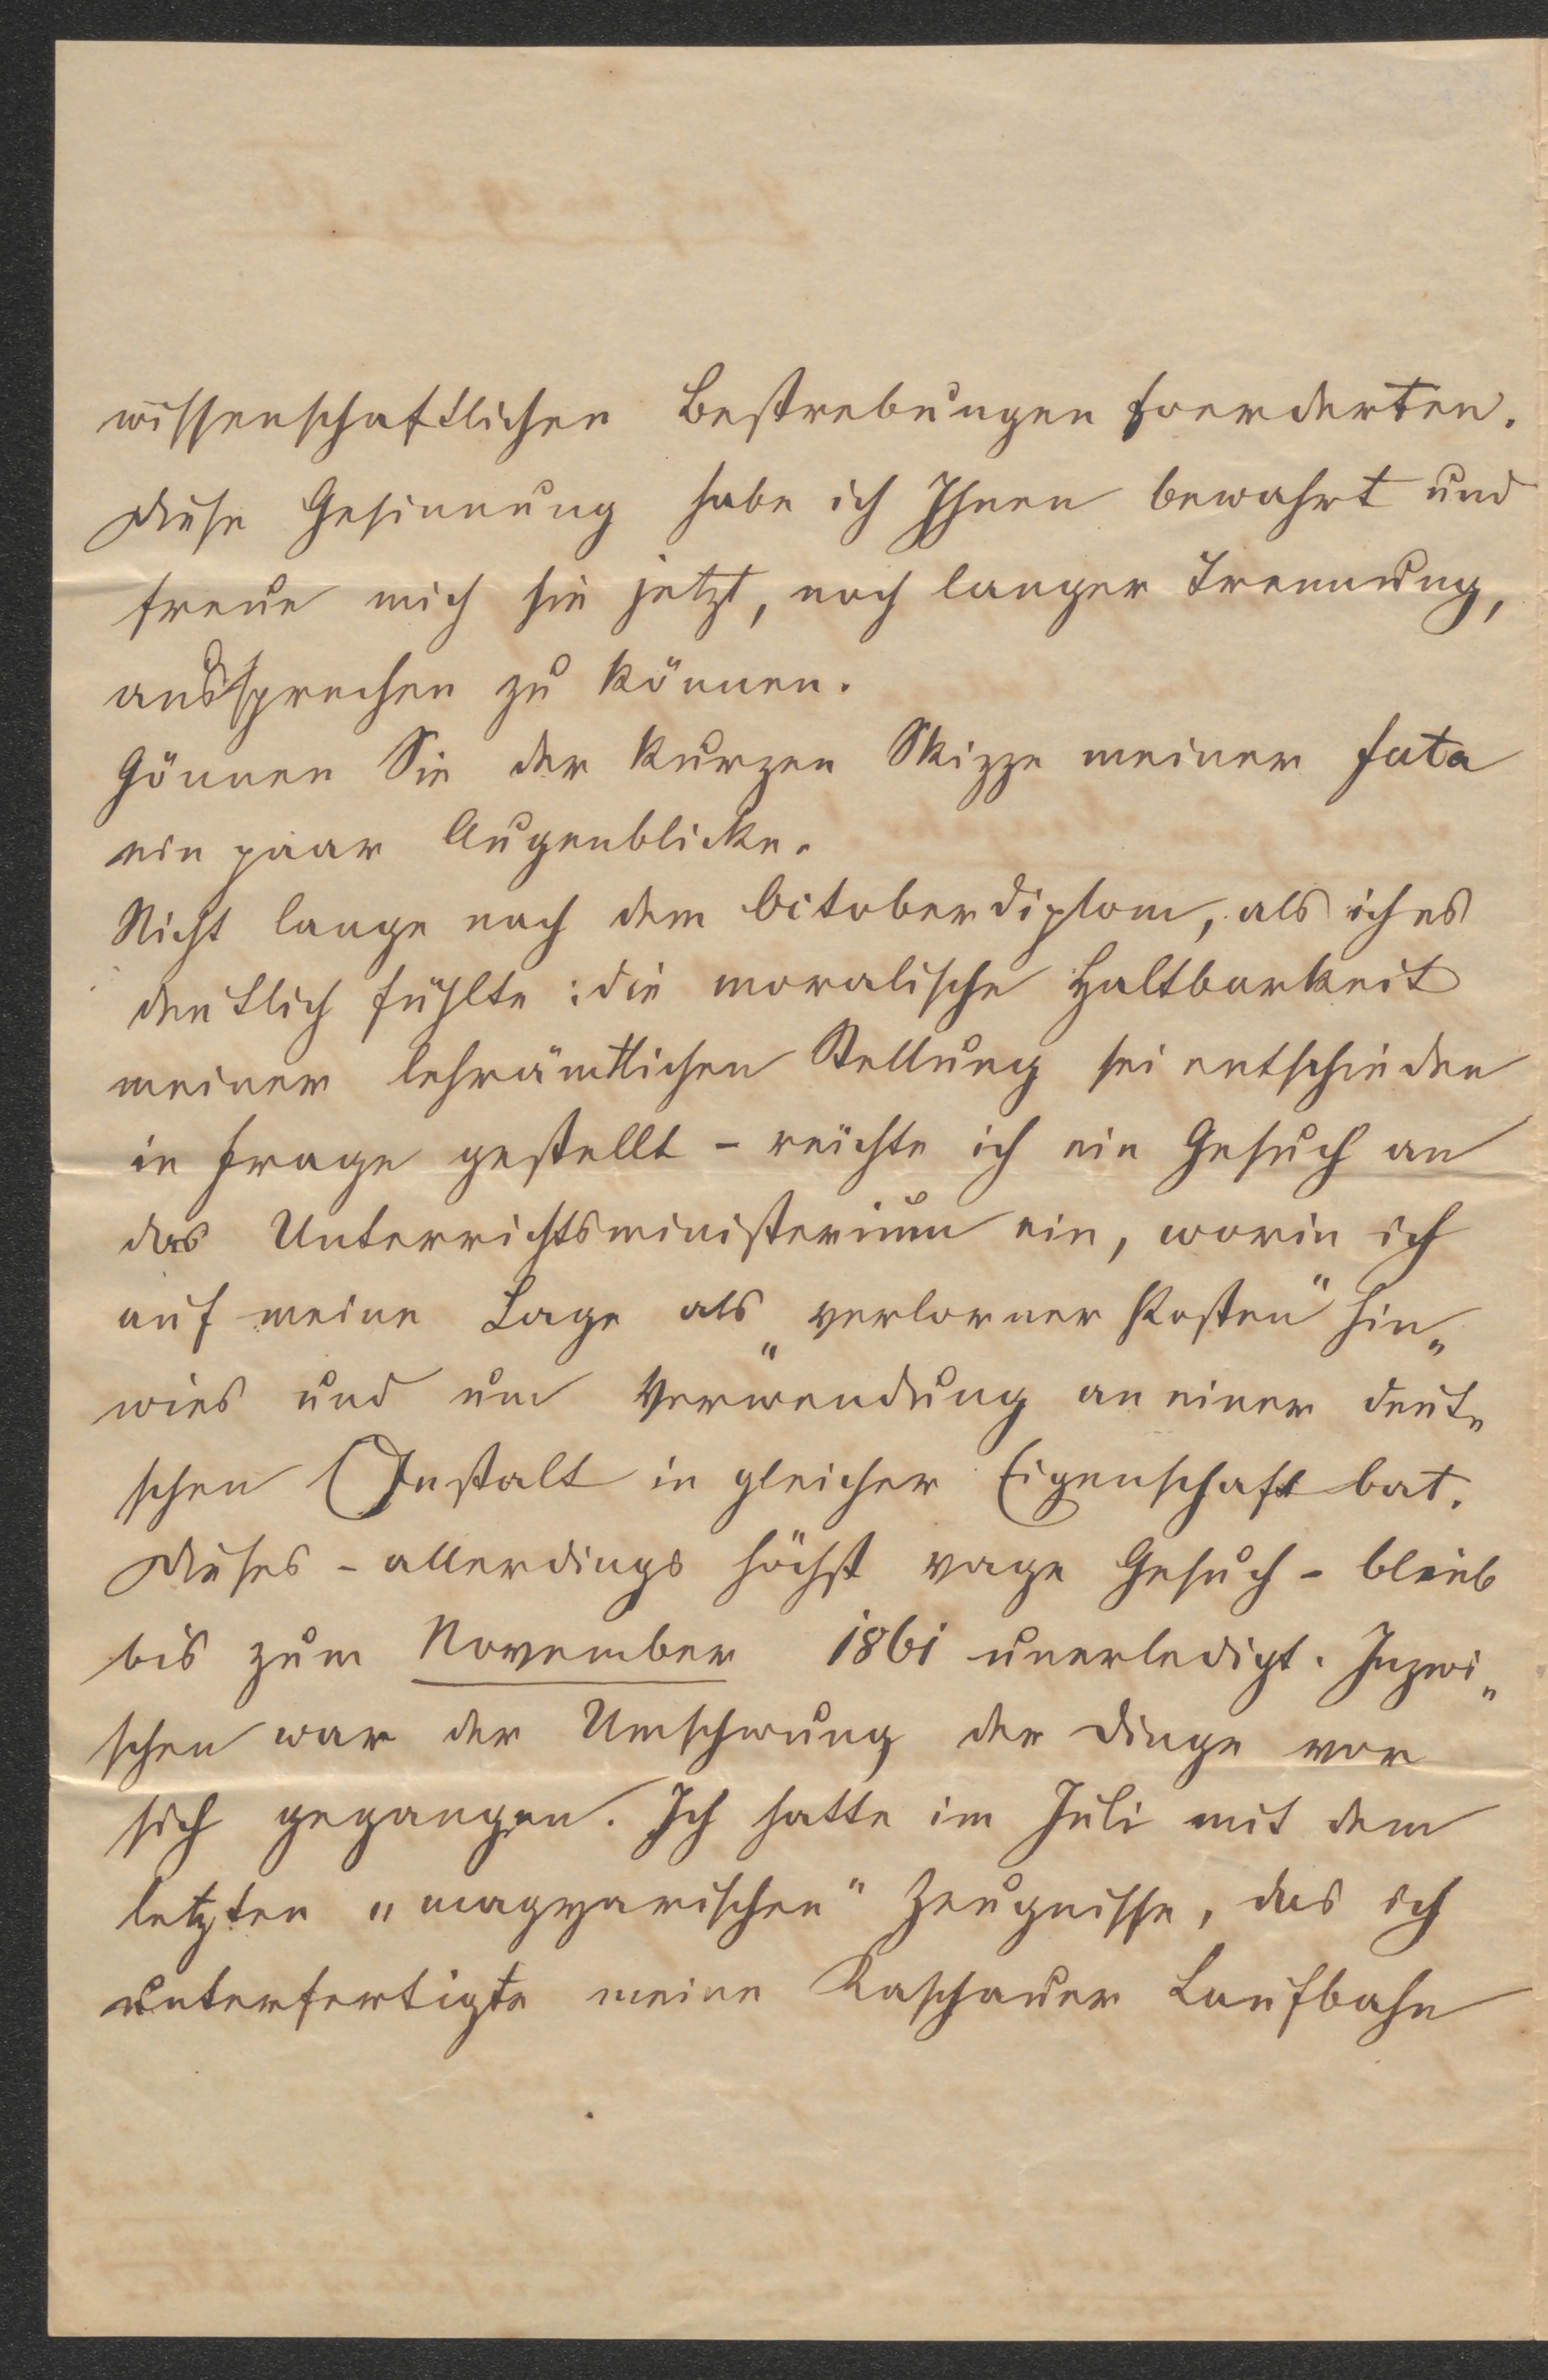 wissenschaftlichen Bestrebungen foerderten.
Diese Gesinnung habe ich Ihnen bewahrt und
freue mich sie jetzt, nach langer Trennung,
aussprechen zu können.
Gönnen Sie der kurzen Skizze meiner fata
ein paar Augenblicke.
Nicht lange nach dem Octoberdiplom, als ich es
deutlich fühlte: die moralische Haltbarkeit
meiner lehrämtlichen Stellung sei entschieden
in Frage gestellt – reichte ich ein Gesuch an
das Unterrichtsministerium ein, worin ich
auf meine Lage als „verlorner Posten“ hin„
wies und um Verwendung an einer deut„
schen Anstalt in gleicher Eigenschaft bat.
Dieses – allerdings höchst vage Gesuch – blieb
bis zum November 1861 unerledigt. Inzwi„
schen war der Umschwung der Dinge vor
sich gegangen. Ich hatte im Juli mit dem
letzten „magyarischen“ Zeugnisse, das ich
unterfertigte meine Kaschauer Laufbahn